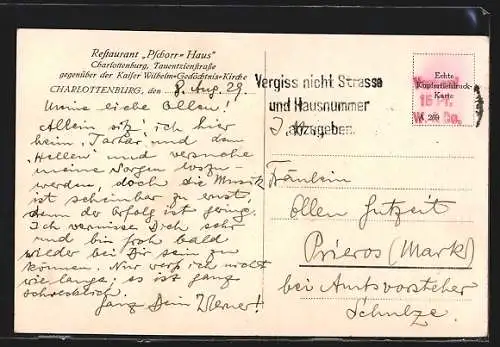 Restaurant „Pschorr-Haus"
Charlottenburg, Tauentzienstraße
gegenüber der Kaiser Wilhelm-Gedächtnis-Kirche
CHARLOTTENBURG, den 8. Aug. 29.
Meine liebe Ellen!
Allein sitz' ich hier
beim Tartar und dem
„Hellen" und versuche
meine Sorgen loszu-
werden, doch die Musik
ist scheinbar zu ernst,
denn der Erfolg ist gering.
Ich vermisse Dich sehr
und bin froh bald
wieder bei Dir sein zu
können. Nur weiß ich nicht
wie lange; es ist ganz
schrecklich.
Ganz Dein Werner!
Vergiss nicht Strasse
und Hausnummer
anzugeben
Echte
Kupfertiefdruck-
Karte
15 Pf.
Fräulein
Ellen Gutzeit
Prieros (Mark)
bei Amtsvorsteher
Schulze.